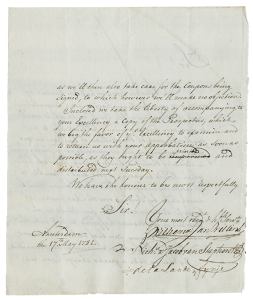 as we'll then also take care for the Coupons being
signed, to which however we'll make no objection
Inclosed we take the liberty of accompanying to
your Excellency a Copy of the Prospectus, which
we beg the favor of yr Excellency to examine and
to return us with your approbation as soon as
possible, as they ought to be printed and
distributed next Tuesday.
We have the honour to be most respectfully
Sir.
Your most
Amsterdam
the 17th May 1782.